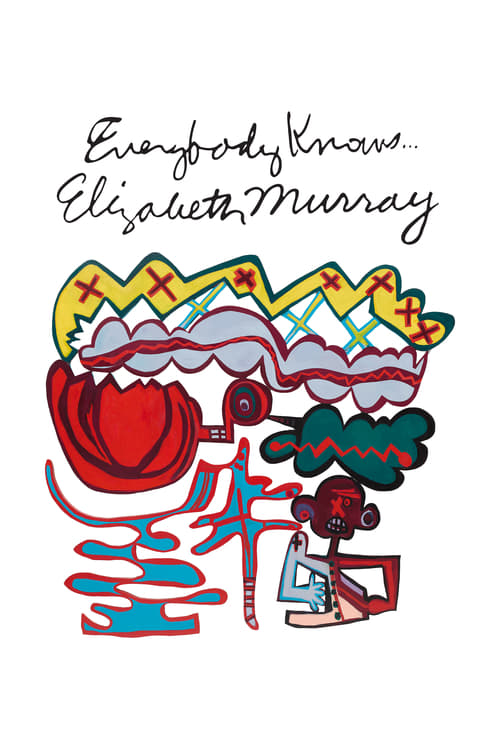 Everybody Knows...
Elizabeth Murray